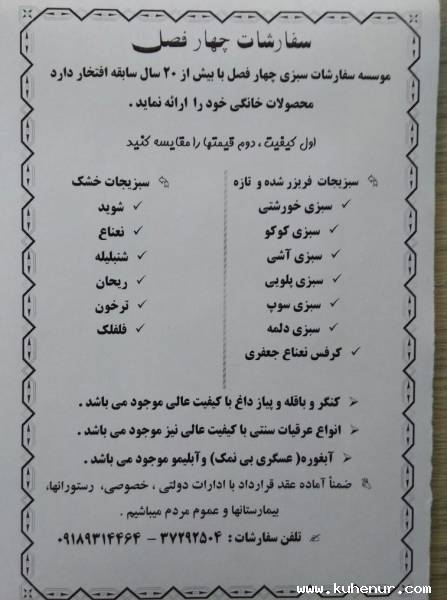 سفارشات چهار فصل
موسسه سفارشات سبزی چهار فصل با بیش از ۲۰ سال سابقه افتخار دارد
محصولات خانگی خود را ارائه نماید .
اول کیفیت ، دوم قیمتها را مقایسه کنید
سبزیجات فریزر شده و تازه
سبزی خورشتی
سبزی کوکو
سبزی آشی
سبزی پلویی
سبزی سوپ
سبزی دلمه
کرفس نعناع جعفری
سبزیجات خشک
شوید
نعناع
شنبلیله
ریحان
ترخون
فلفلک
کنگر و باقله و پیاز داغ با کیفیت عالی موجود می باشد .
انواع عرقیات سنتی با کیفیت عالی نیز موجود می باشد .
آبغوره( عسگری بی نمک) وآبلیمو موجود می باشد .
ضمناً آماده عقد قرارداد با ادارات دولتی ، خصوصی، رستورانها،
بیمارستانها و عموم مردم میباشیم .
تلفن سفارشات : ۳۷۲۹۲۵۰۴ – ۰۹۱۸۹۳۱۴۴۶۴
www.kuhenur.com